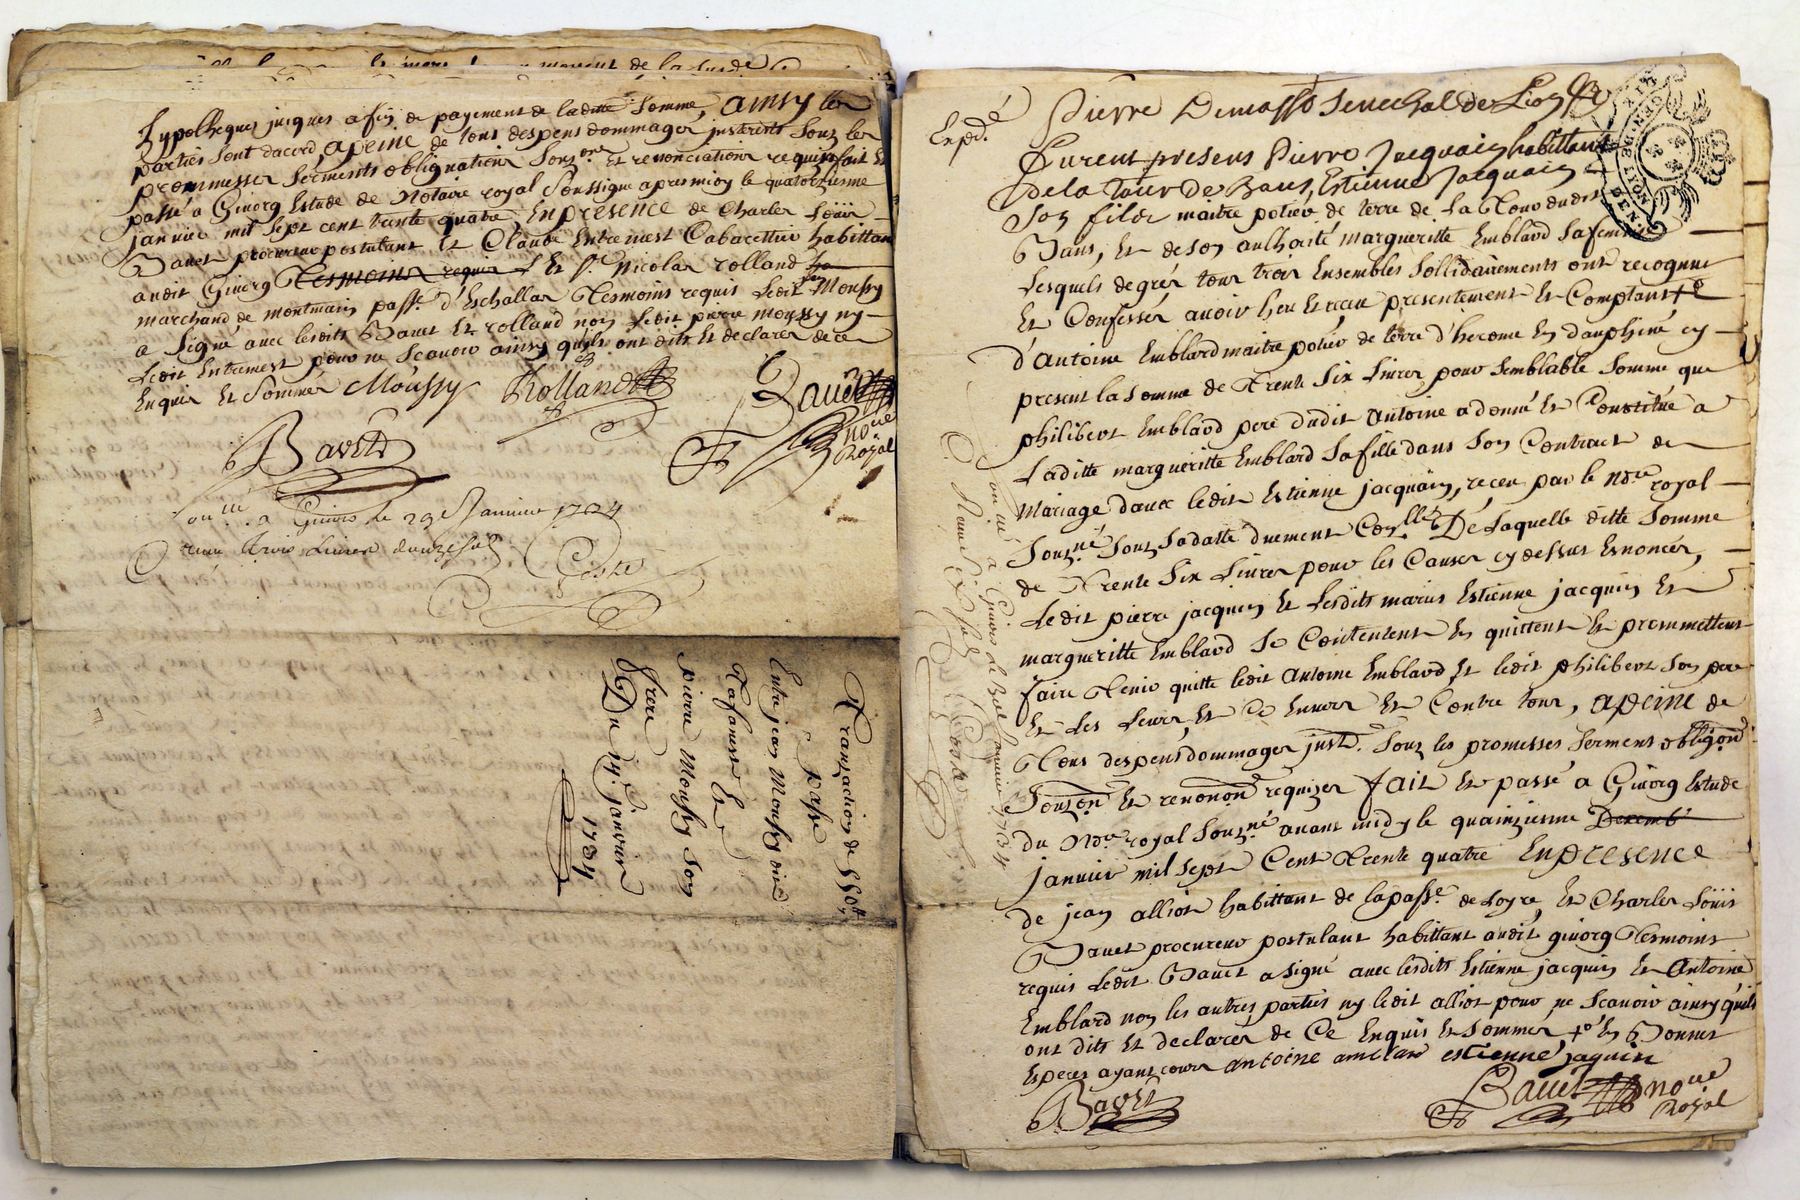 hypotheques jusques a fin de payement de laditte somme, ainsy les
parties sont dacord, apeine de tous despens dommages jnterests souz les
prommesses serments oblignations souz.ons et renonciations requises fait et
passé a Givorg Estude de Notaire royal soussigne apres midy le quatorzieme
janvier mil sept cent trente quatre En presence de Charles Loüis
Bauet procureur postulant Et Claude Entremest Cabarettier habittans
audit Givorg Tesmoins requis Et Sr. Nicolas rolland
marchand de montmain passe. d'Eschallas Tesmoins requis Ledit Moussy
a signé avec lesdits Bauet Et rolland non ledit pierre moussy ny
Ledit Entremest pour ne scavoir ainsy quils ont dits Et declares de ce
Enquis Et sommés Moussy Rolland Bauet
Bavet
no.re
Royal
a Givors le 29e Janvier 1734
trois Livres douze sols
Coste
Tranzaction de 550#
passé
Entre jean Moussy dit
Lafanesse Et
pierre Moussy son
frere
Du 14. janvier
1734
Expd.é
Pierre Demasso Senechal de Lion
GEN. DE LION
Furent presens Pierre Jacquain habittant
de la Tour de Bans, Estienne Jacquain
son fils maitre potier de terre de La Tour dudit
Bans, Et de son authorité margueritte Emblard sa femme
Lesquels de grés tous trois Ensembles sollidairements ont recognut
Et Confessés avoir heu Et receu presentement Et Comptant +
d'Antoine Emblard maitre potier de terre d'herome En dauphiné cy
present la somme de Trente six livres pour semblable somme que
philibert Emblard pere dudit Antoine a donné Et Constitué a
Laditte margueritte Emblard sa fille dans son Contract de
mariage d'avec ledit Estienne jacquain, receu par le No.re royal
souz.né souz sa datte duement Con.llé De laquelle ditte somme
de Trente six Livres pour les Causes cy dessus Enoncés,
Ledit pierre jacquin Et Lesdits mariés Estienne jacquin Et
margueritte Emblard se Contentent En quittent Et prommettent
faire Tenir quitte ledit Antoine Emblard Et ledit philibert son pere
Et Les Leurs Et Ce Envers Et Contre tous, apeine de
Tous despens dommages just. souz les promesses serments obligon
souzon Et renonon requizes fait Et passé a Givorg Estude
du No.re royal souz.né avant midy le quainziesme Decemb.
janvier mil sept Cent Trente quatre En presence
de jean alliot habittant de la passe. de Loyre, Et Charles Loüis
Bauet procureur postulant habittant audit givorg Tesmoins
requis Ledit Bauet a signé avec lesdits Estienne jacquin Et Antoine
Emblard non les autres parties ny ledit alliot pour ne scavoir ainsy quils
ont dits Et declarés de Ce Enquis Et sommés +° En Bonnes
Especes ayant cours antoine amclard estienne jaquin
Bavet
Bauet no.re
Royal
a Givors le 1734